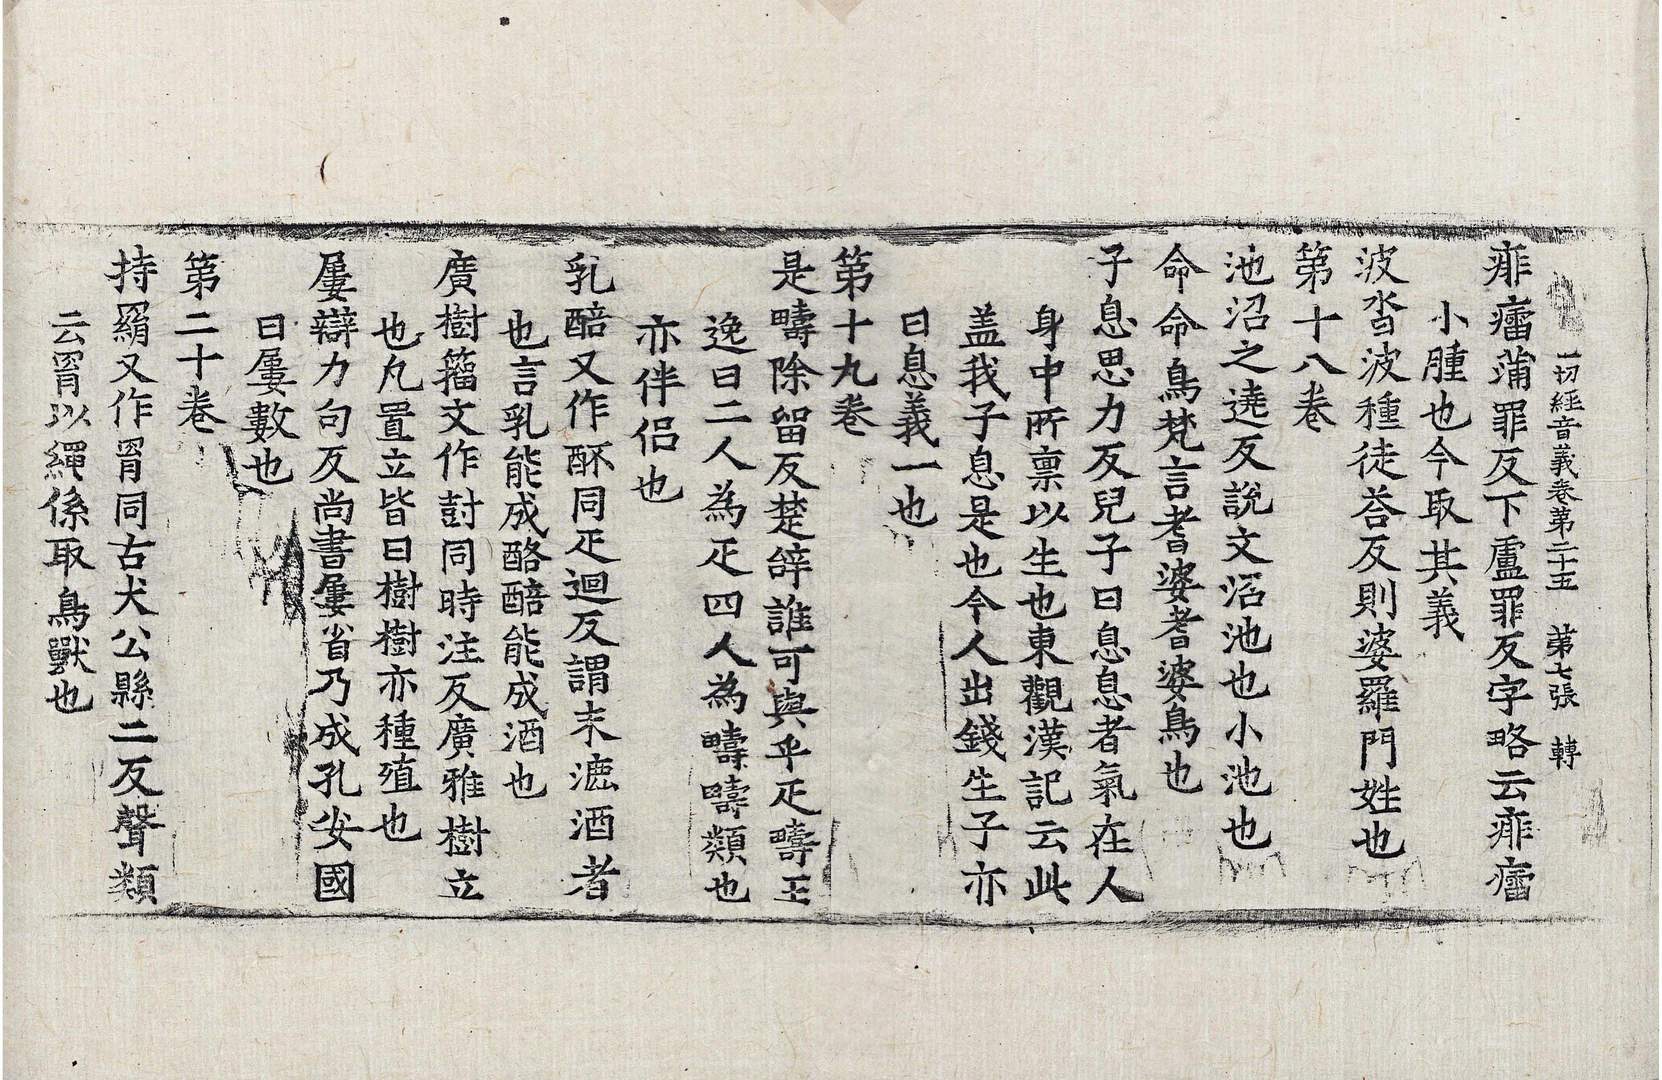 一切經音義卷第二十五　第七張　轉
痱癗蒲罪反下盧罪反字略云痱癗
小腫也今取其義
波沓波種徒荅反則婆羅門姓也
第十八卷
池沼之遶反說文沼池也小池也
命命鳥梵言耆婆耆婆鳥也
子息思力反兒子曰息息者氣在人
身中所禀以生也東觀漢記云此
盖我子息是也今人出錢生子亦
曰息義一也
第十九卷
是疇除留反楚辞誰可與乎疋疇王
逸曰二人為疋四人為疇疇類也
亦伴侣也
乳醅又作䣼同疋迴反謂未漉酒者
也言乳能成酪醅能成酒也
廣樹籀文作尌同時注反廣雅樹立
也凡置立皆曰樹樹亦種殖也
屢辯力句反尚書屢省乃成孔安國
曰屢數也
第二十卷
持羂又作罥同古犬公縣二反聲類
云罥以繩係取鳥獸也